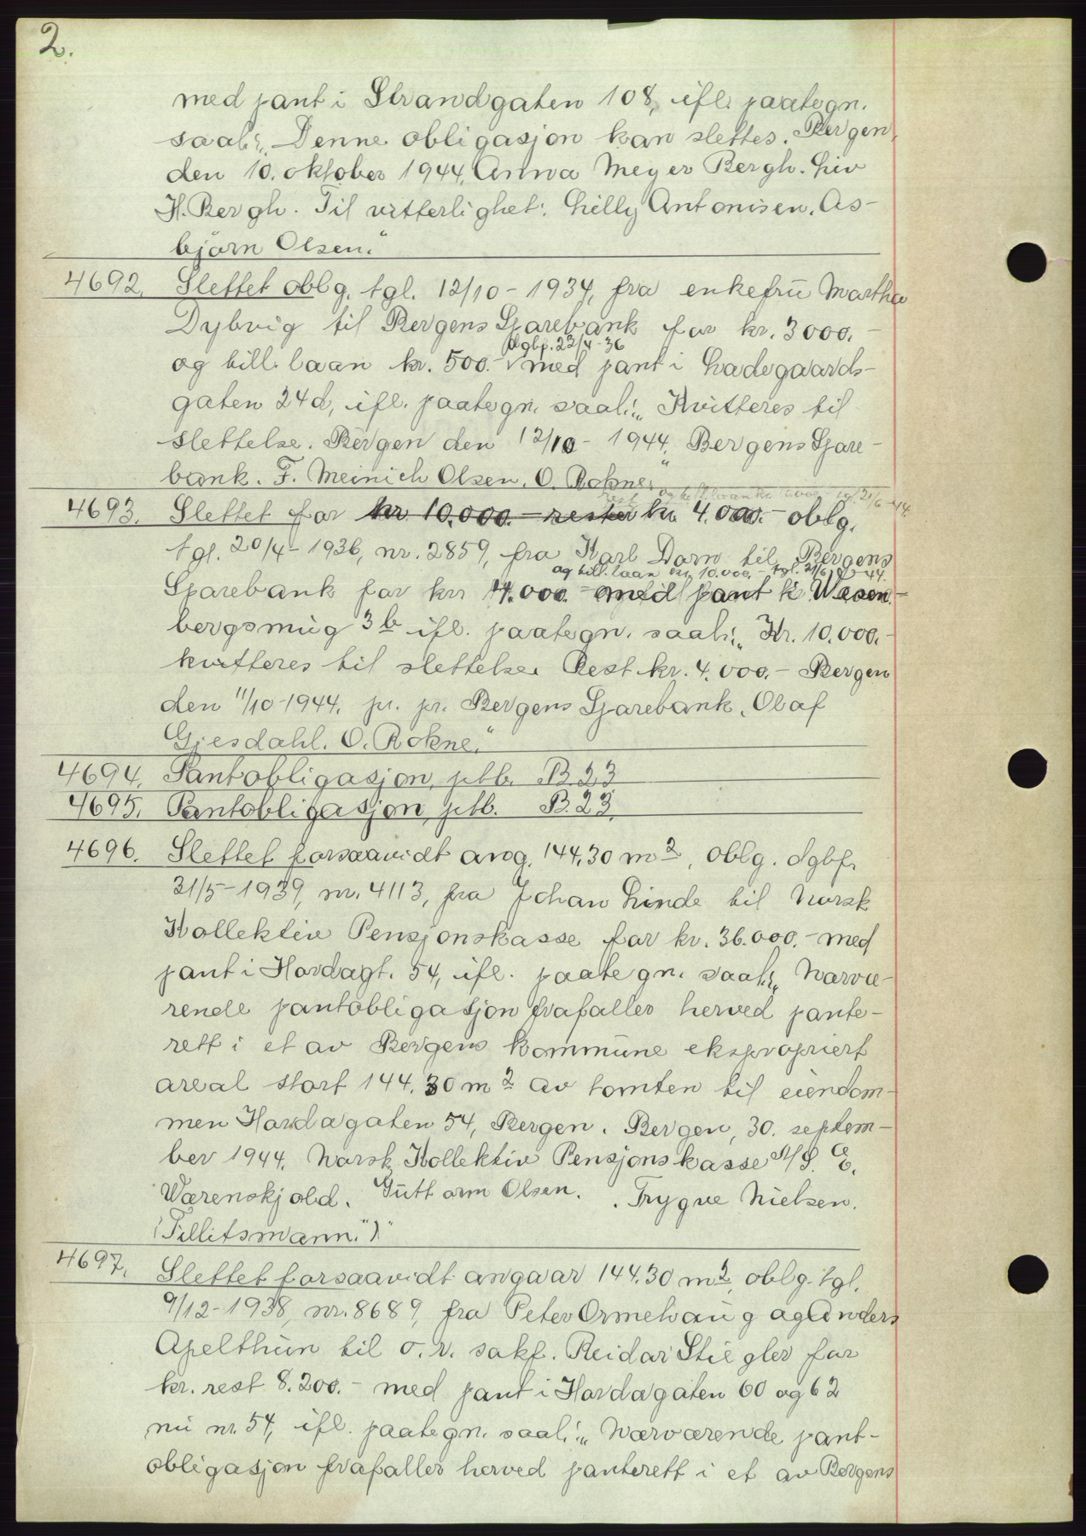 2.
med pant i Strandgaten 108, ifl. paategn.
saal: „Denne obligasjon kan slettes. Bergen,
den 10. oktober 1944, Anna Meyer Bergh. Liv
H. Bergh. Til vitterlighet: Lilly Antonisen. As-
bjørn Olsen."
4692. Slettet oblg. tgl. 12/10 - 1934, fra enkefru Martha
Dybvig til Bergens Sparebank for kr. 3000.-
dgbf. 23/4-36
og till. laan kr. 500.- med pant i Ladegaards-
gaten 24d, ifl. paategn. saal: „Kvitteres til
slettelse. Bergen den 12/10 - 1944. Bergens Spare-
bank. F. Meinich Olsen. O. Rokne."
rest og till. laan kr. 10.000.- tgl. 21/6-44.
4693. Slettet for kr 10.000.- rester kr 4.000.- oblg.
tgl. 20/4 - 1936, nr. 2859, fra Karl Dorn til Bergens
og till. laan kr. 10.000.- tgl. 21/6 19-44
Sparebank for kr. 4.000.- med pant i Wesen-
bergsmug 3b ifl. paategn. saal: „Kr. 10.000.-
kvitteres til slettelse. Rest kr. 4.000.- Bergen
den 11/10-1944. pr. pr. Bergens Sparebank. Olaf
Gjesdahl. O. Rokne."
4694. Pantobligasjon, ptb. B23
4695. Pantobligasjon, ptb. B.23.
4696. Slettet forsaavidt ang. 144.30 m2, oblg. dgbf.
31/5-1939, nr. 4113, fra Johan Linde til Norsk
Kollektiv Pensjonskasse for kr. 36.000.- med
pant i Hordagt. 54, ifl. paategn. saal: „Nærvæ-
rende pantobligasjon frafaller herved pante-
rett i et av Bergens kommune ekspropriert
areal stort 144.30 m2 av tomten til eiendom-
men Hordagaten 54, Bergen. Bergen, 30. septem-
ber 1944. Norsk Kollektiv Pensjonskasse A/S. E.
Wærenskjold. Gutt orm Olsen. Trygve Nielsen.
(Tillitsmann")"
4697. Slettet forsaavidt angaar 144.30 m2, oblg. tgl.
9/12-1938, nr. 8689, fra Peter Ormehaug og Anders
Apelthun til o. r. sakf. Reidar Stiegler for
kr. rest 8.200.- med pant i Hordagaten 60 og 62
nu nr. 54, ifl. paategn. saal: „Nærværende pant-
obligasjon frafaller herved panterett i et av Bergens